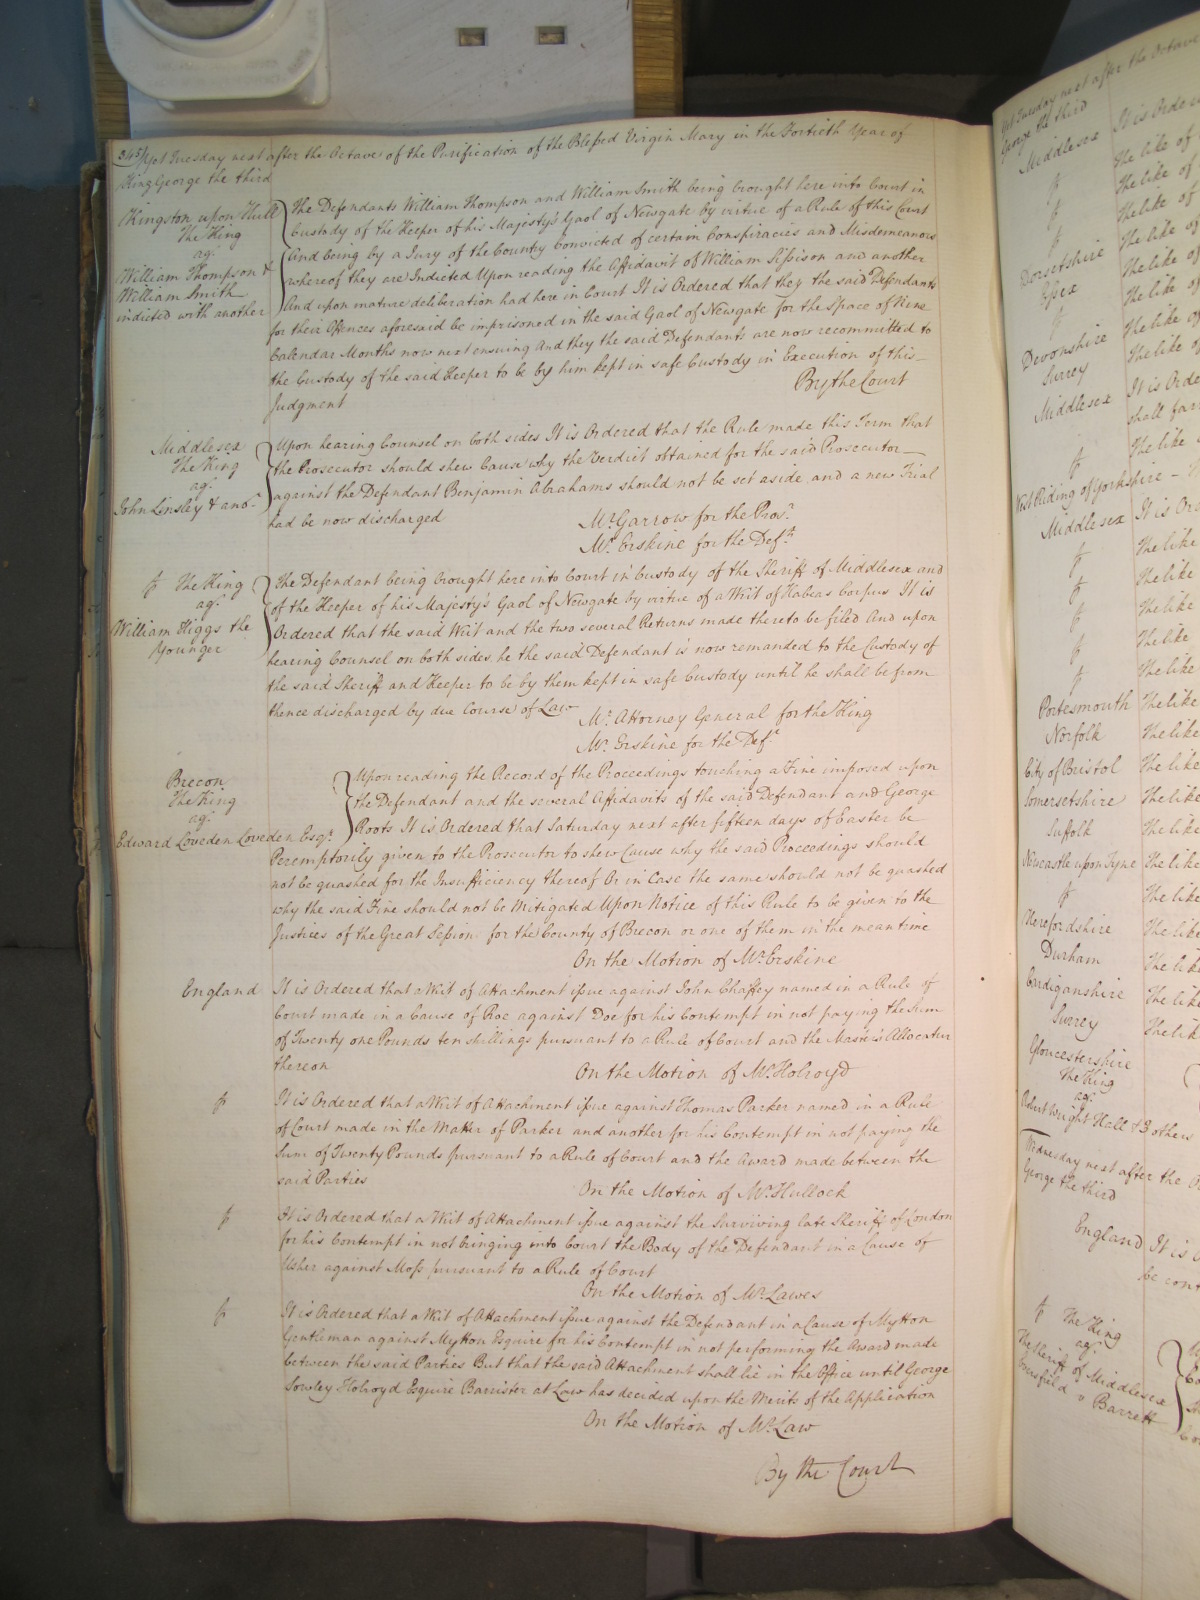 345 / Yet Tuesday next after the Octave of the Purification of the Blessed Virgin Mary in the Fortieth Year of
King George the third
Kingston upon Hull
The King
agt
William Thompson &
William Smith
indicted with another
The Defendants William Thompson and William Smith being brought here into Court in
Custody of the Keeper of his Majesty's Gaol of Newgate by virtue of a Rule of this Court
And being by a Jury of the Country convicted of certain Conspiracies and Misdemeanors
whereof they are Indicted Upon reading the Affidavit of William Sissison and another
And upon mature deliberation had here in Court It is Ordered that they the said Defendants
for their Offences aforesaid be imprisoned in the said Gaol of Newgate for the Space of Nine
Calendar Months now next ensuing And they the said Defendants are now recommitted to
the Custody of the said Keeper to be by him kept in safe Custody in Execution of this
Judgment
By the Court
Middlesex
The King
agt
John Linsley & anor
Upon hearing Counsel on both sides It is Ordered that the Rule made this Term that
the Prosecutor should shew Cause why the Verdict obtained for the said Prosecutor
against the Defendant Benjamin Abrahams should not be set aside and a new Trial
had be now discharged
Mr Garrow for the Prosr
Mr Erskine for the Deft
The King
agt
William Higgs the
Younger
The Defendant being brought here into Court in Custody of the Sheriff of Middlesex and
of the Keeper of his Majesty's Gaol of Newgate by virtue of a Writ of Habeas Corpus It is
Ordered that the said Writ and the two several Returns made thereto be filed And upon
hearing Counsel on both sides he the said Defendant is now remanded to the Custody of
the said Sheriff and Keeper to be by them kept in safe Custody until he shall be from
thence discharged by due Course of Law
Mr Attorney General for the King
Mr Erskine for the Deft
Brecon
The King
agt
Edward Loveden Loveden Esqr
Upon reading the Record of the Proceedings touching a Fine imposed upon
the Defendant and the several Affidavits of the said Defendant and George
Roots It is Ordered that Saturday next after fifteen days of Easter be
Peremptorily given to the Prosecutor to shew Cause why the said Proceedings should
not be quashed for the Insufficiency thereof Or in Case the same should not be quashed
why the said Fine should not be Mitigated Upon Notice of this Rule to be given to the
Justices of the Great Session for the County of Brecon or one of them in the mean time
On the Motion of Mr Erskine
England
It is Ordered that a Writ of Attachment issue against John Chaffey named in a Rule of
Court made in a Cause of Roe against Doe for his Contempt in not paying the Sum
of Twenty one Pounds ten shillings pursuant to a Rule of Court and the Master's Allocatur
thereon
On the Motion of Mr Holroyd
It is Ordered that a Writ of Attachment issue against Thomas Parker named in a Rule
of Court made in the Matter of Parker and another for his Contempt in not paying the
Sum of Twenty Pounds pursuant to a Rule of Court and the Award made between the
said Parties
On the Motion of Mr Hullock
It is Ordered that a Writ of Attachment issue against the surviving late Sheriff of London
for his Contempt in not bringing into Court the Body of the Defendant in a Cause of
Usher against Moss pursuant to a Rule of Court
On the Motion of Mr Lawes
It is Ordered that a Writ of Attachment issue against the Defendant in a Cause of Mytton
Gentleman against Mytton Esquire for his Contempt in not performing the Award made
between the said Parties But that the said Attachment shall lie in the Office until George
Sowley Holroyd Esquire Barrister at Law has decided upon the Merits of the Application
On the Motion of Mr Law
By the Court
Yet Tuesday next after the Octave
George the third
Middlesex It is Ordere
The like of
The like of
The like of
The like of
Dorsetshire The like of
Essex The like of
The like of
Devonshire The like of
Surrey
Middlesex It is Orde
shall far
The like
West Riding of Yorkshire
Middlesex It is Ord
The like
The like
The like
The like
The like
Portesmouth The like
Norfolk The like
City of Bristol The like
Somersetshire The like
Suffolk The like
Newcastle upon Tyne The like
The like
Herefordshire The like
Durham The like
Cardiganshire The like
Surrey The like
Gloucestershire
The King
agt
Robert Wright Hall & 3 others
Wednesday next after the
George the third
England It is
be con
The King
agt
The Sheriff of Middlesex
v Barrett